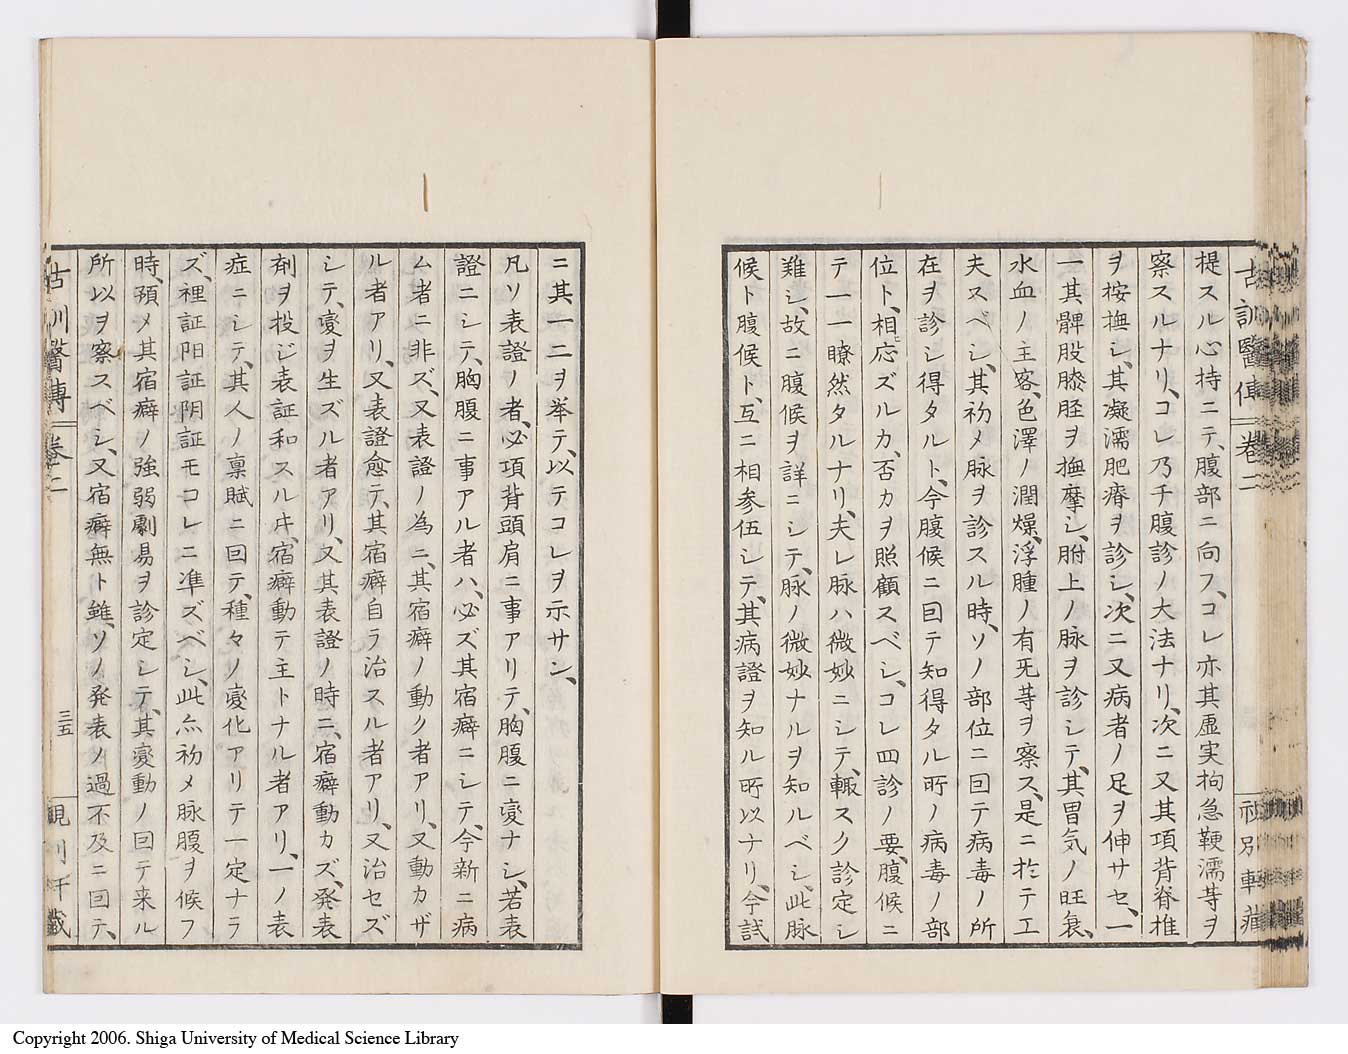 提スル心持ニテ、腹部ニ向フ、コレ亦其虚実拘急鞕濡等ヲ
察スルナリ、コレ乃チ腹診ノ大法ナリ、次ニ又其項背脊椎
ヲ按撫シ、其凝濡肥瘠ヲ診シ、次ニ又病者ノ足ヲ伸サセ、一
一其髀股膝脛ヲ撫摩シ、胕上ノ脉ヲ診シテ、其胃気ノ旺衰、
水血ノ主客、色澤ノ潤燥、浮腫ノ有旡等ヲ察ス、是ニ於テ工
夫スベシ、其初メ脉ヲ診スル時、ソノ部位ニ回テ病毒ノ所
在ヲ診シ得タルト、今腹候ニ回テ知得タル所ノ病毒ノ部
位ト、相応ズルカ、否カヲ照顧スベシ、コレ四診ノ要、腹候ニ
テ一一瞭然タルナリ、夫レ脉ハ微妙ニシテ、輙スク診定シ
難シ、故ニ腹候ヲ詳ニシテ、脉ノ微妙ナルヲ知ルベシ、此脉
候ト腹候ト、互ニ相参伍シテ、其病證ヲ知ル所以ナリ、今試
古訓醫傳 卷二
ニ其一二ヲ挙テ、以テコレヲ示サン、
凡ソ表證ノ者、必項背頭肩ニ事アリテ、胸腹ニ変ナシ、若表
證ニシテ、胸腹ニ事アル者ハ、必ズ其宿癖ニシテ、今新ニ病
ム者ニ非ズ、又表證ノ為ニ、其宿癖ノ動ク者アリ、又動カザ
ル者アリ、又表證愈テ、其宿癖自ラ治スル者アリ、又治セズ
シテ、変ヲ生ズル者アリ、又其表證ノ時ニ、宿癖動カズ、発表
剤ヲ投ジ表証和スルヰ、宿癖動テ主トナル者アリ、一ノ表
症ニシテ、其人ノ稟賦ニ回テ、種々ノ変化アリテ一定ナラ
ズ、裡証阳証阴証モコレニ準ズベシ、此尓初メ脉腹ヲ候フ
時、預メ其宿癖ノ強弱劇易ヲ診定シテ、其変動ノ回テ来ル
所以ヲ察スベシ、又宿癖無ト雖、ソノ発表ノ過不及ニ回テ、
古訓醫傳 卷二
三五
Copyright 2006. Shiga University of Medical Science Library